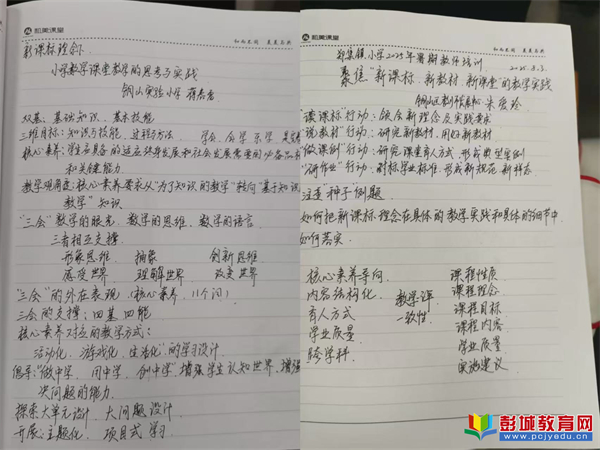 和美课堂
和而不同 美美与共
新课标理念下
小学数学课堂教学的思考与实践
铜山实验小学
双基、基础知识、基本技能
三维目标：知识与技能、过程与方法 学会 会学 乐学
核心素养：学生具备的适应终身发展和社会发展需要的必备品格
和关键能力
教学观角度：核心素养要求从“为了知识的教学”转向“基于知识
教学” 知识
“三会”数学的眼光、数学的思维、数学的语言
三者相互支撑
形象思维 抽象 创新思维
感受世界 理解世界 改变世界
“三会”的外在表现（核心素养、11个词）
三会的支撑：四基 四能
核心素养对应的教学方式：
活动化、游戏化、生活化”的学习设计
倡导“做中学 用中学 创中学”增强学生认知世界、增强
决问题的能力
探索大单元设计 大问题设计
开展：主题化、项目式学习
和美课堂
和而不同 美美与共
郑集镇小学2025年暑期教师培训
2025.8.3
聚焦“新课标、新教材、新课堂”的教学实践
朱爱玲
“读课标”行动：领会新理念及实践要求
“说教材”行动：研究新教材，用好新教材
“做课例”行动：研究课堂育人方式，形成典型案例
“研作业”行动：对标学业标准，形成新规范 新样态
注意“种子”例题
如何把新课标理念在具体的教学实践和具体的细节中
如何落实
核心素养导向 课程性质
内容结构化 课程理念
育人方式 教学评 课程目标
学业质量 一致性 课程内容
跨学科 学业质量
实施建议
彭城教育网
www.pcjyedu.cn